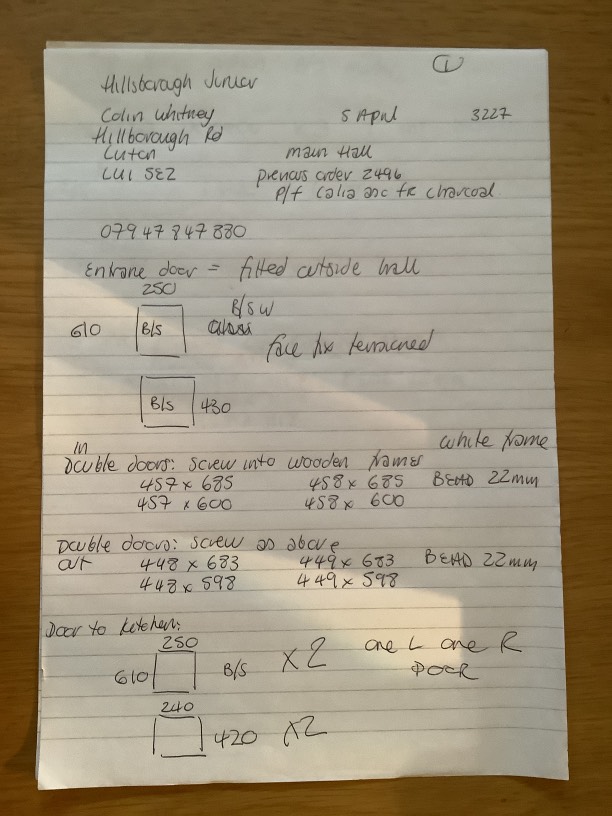 ①
Hillsborough Junior
Colin Whitney 5 April 3227
Hillborough Rd
Luton main Hall
LU1 5EZ previous order 2496
P/f Calia asc fr charcoal
07947 847 880
Entrane door = fitted outside hall
250
B/S W
610 B/S Glass
face fix tensioned
B/S 430
in white frame
Double doors: screw into wooden frames
457 x 685 458 x 685 BEAD 22mm
457 x 600 458 x 600
Double doors: screw as above
out 448 x 683 449 x 683 BEAD 22mm
448 x 598 449 x 598
Door to kitchen:
250
610 B/S x2 one L one R
DOOR
240
420 x2